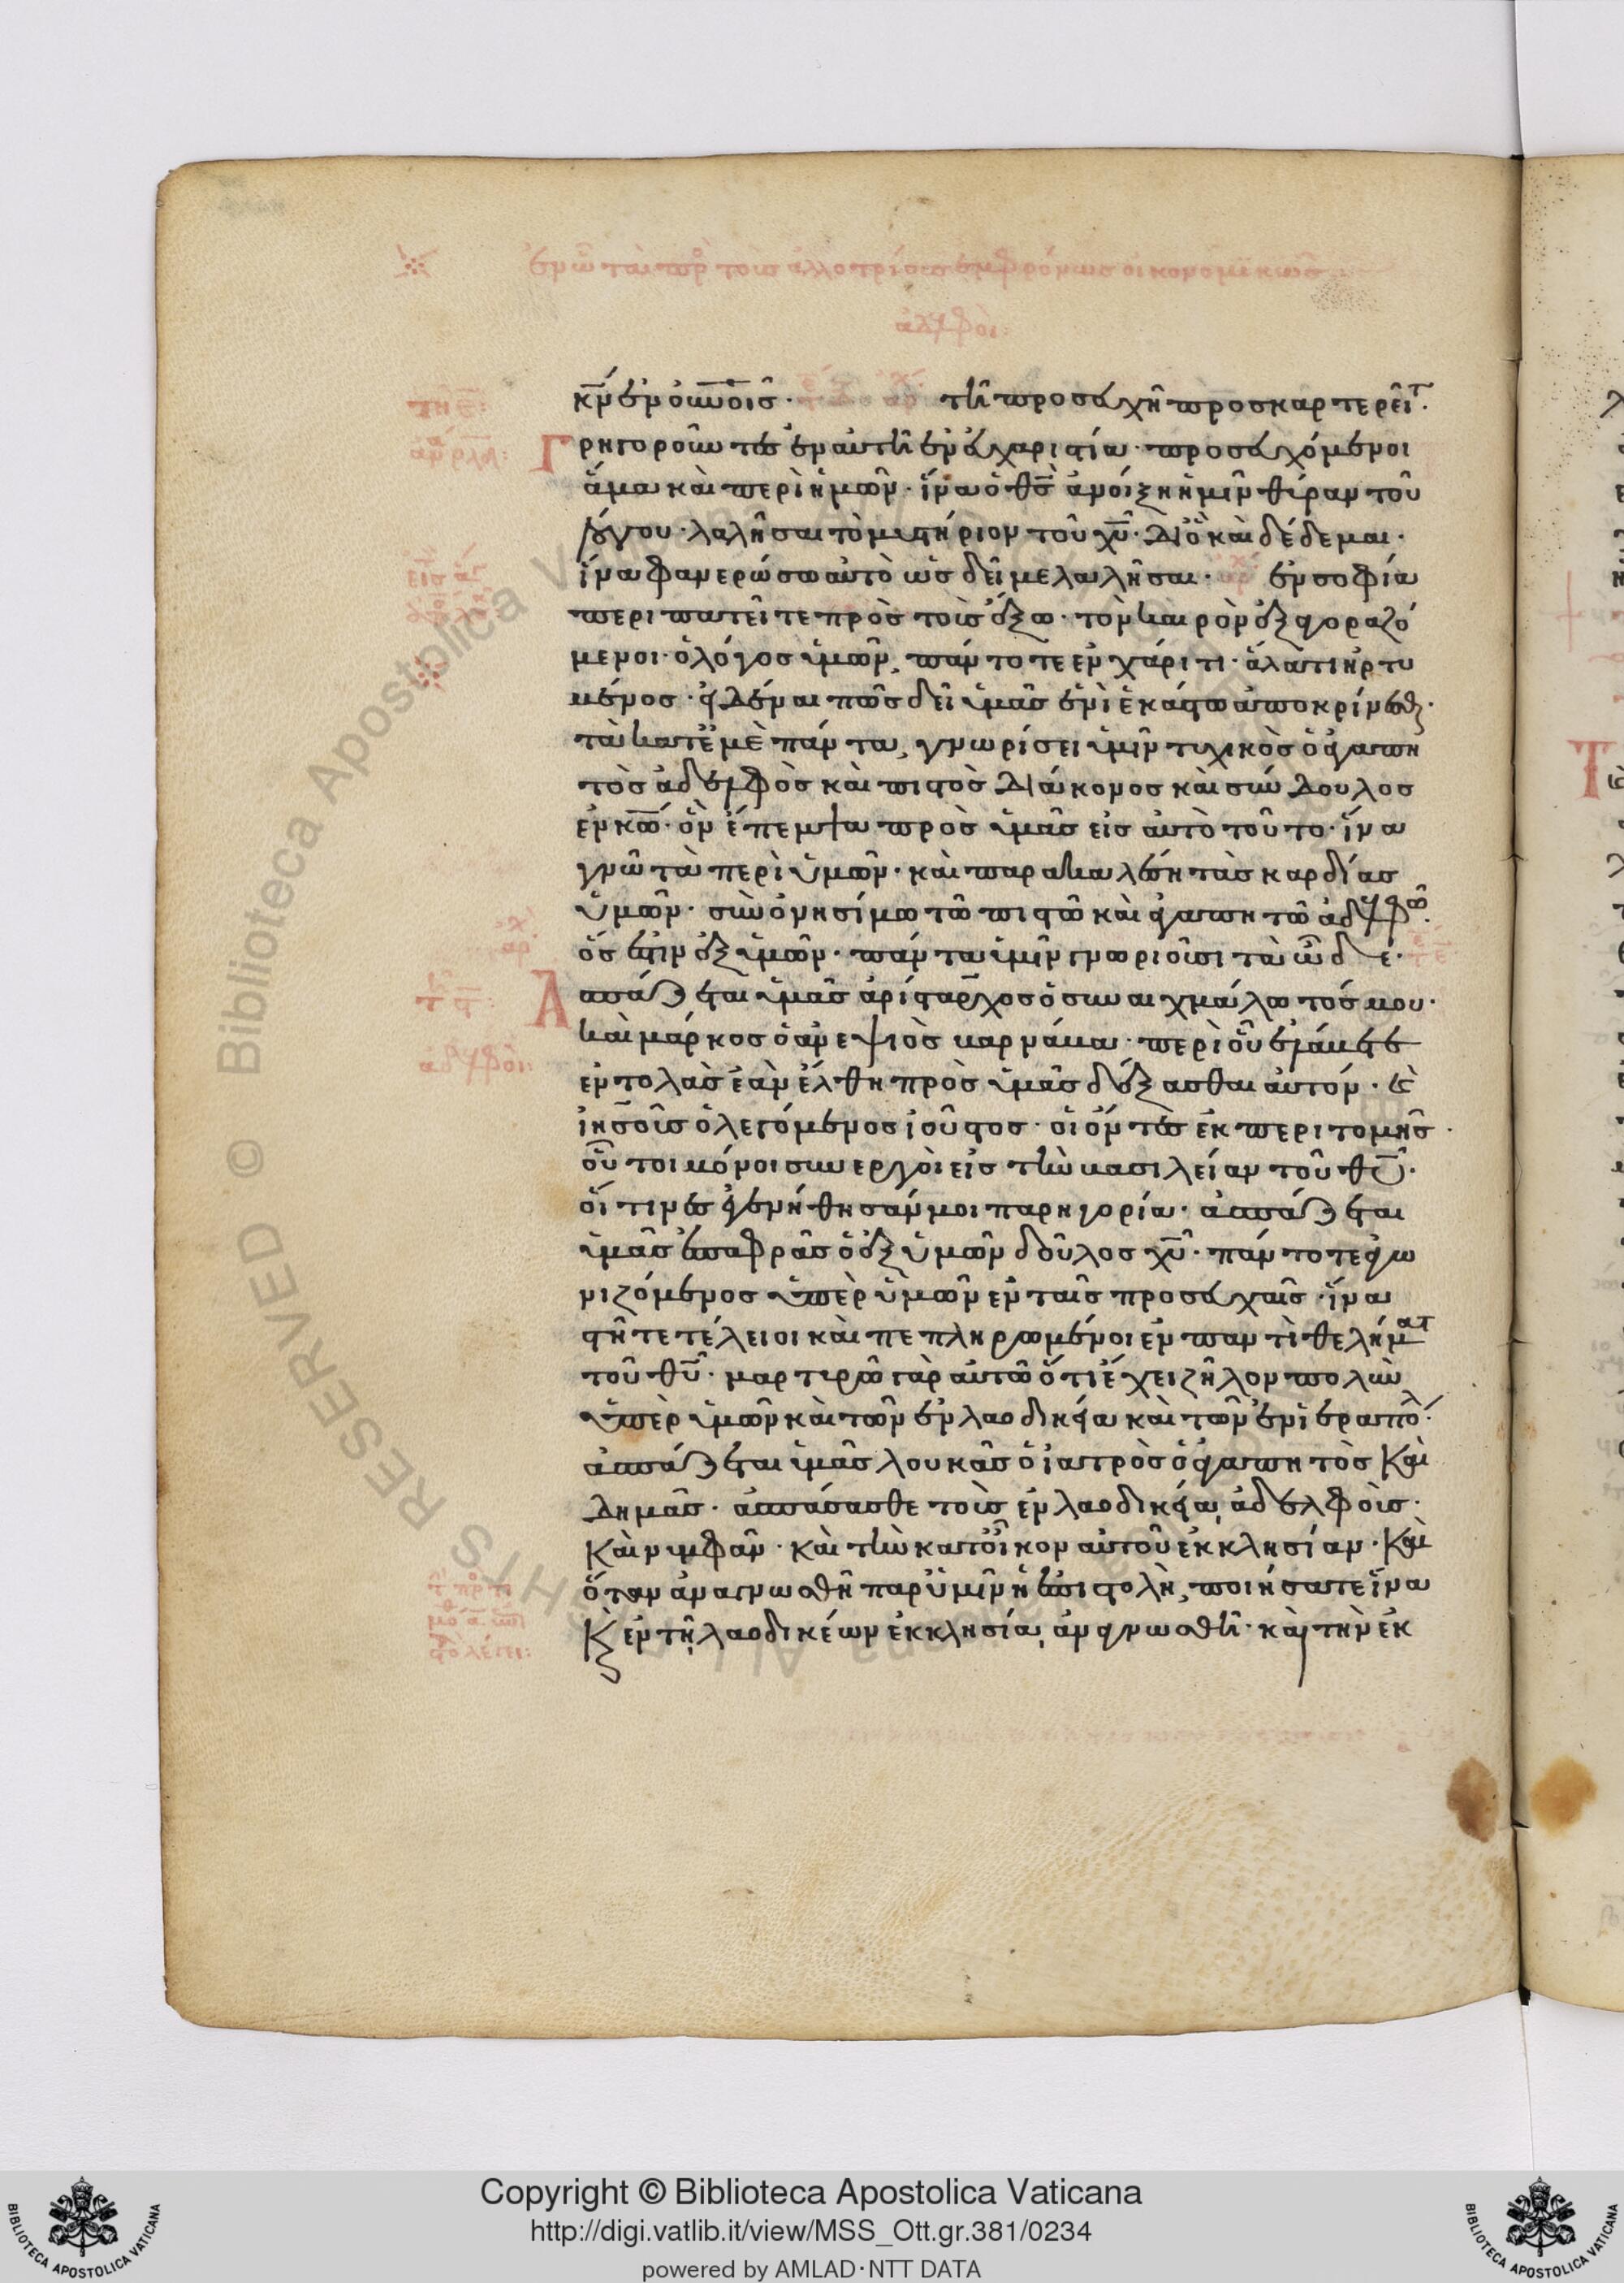 κν̅ ἐν ου̅νοις· τῆ προσευχῆ προσκαρτερεῖτ·
Γρηγοροῦντες ἐν αὐτῆ ἐν εὐχαριστία· προσευχόμενοι
ἅμα καὶ περὶ ἡμῶν· ἵνα ὁ θς̅ ἀνοίξη ἡμῖν θύραν τοῦ
λόγου· λαλῆσαι τὸ μυστήριον τοῦ χυ̅· δι ὃ καὶ δέδεμαι·
ἵνα φανερώσω αὐτὸ ὡς δεῖ με λαλῆσαι· ἐν σοφία
περιπατεῖτε πρὸς τοὺς ἔξω· τὸν καιρὸν ἐξαγοραζό
μενοι· ὁ λόγος ὑμῶν, πάντοτε ἐν χάριτι· ἅλατι ἠρτυ
μένος· εἰδέναι πῶς δεῖ ὑμᾶς ἑνὶ ἑκάστω ἀποκρίνεσθ·
τὰ κατ ἐμὲ πάντα, γνωρίσει ὑμῖν τυχικὸς ὁ ἀγαπη
τὸς ἀδελφὸς καὶ πιστὸς διάκονος καὶ σύνδουλος
ἐν κω̅· ὃν ἔπεμψα πρὸς ὑμᾶς εἰς αὐτὸ τοῦτο· ἵνα
γνῶ τὰ περὶ ὑμῶν· καὶ παρακαλέση τὰς καρδίας
ὑμῶν· σὺν ὀνησίμω τῶ πιστῶ καὶ ἀγαπητῶ ἀδελφῶ·
ὅς ἐστιν ἐξ ὑμῶν· πάντα ὑμῖν γνωριοῦσι τὰ ὧδε·
Ἀσπάζεται ὑμᾶς ἀρίσταρχος ὁ συναιχμάλωτός μου·
καὶ μάρκος ὁ ἀνεψιὸς βαρνάβα· περὶ οὗ ἐλάβετε
ἐντολὰς ἐὰν ἔλθη πρὸς ὑμᾶς δέξασθαι αὐτόν· καὶ
ἰησοῦς ὁ λεγόμενος ἰοῦστος· οἱ ὄντες ἐκ περιτομῆς·
οὗτοι μόνοι συνεργοὶ εἰς τὴν βασιλείαν τοῦ θυ̅·
οἵτινες ἐγενήθησάν μοι παρηγορία· ἀσπάζεται
ὑμᾶς ἐπαφρᾶς ὁ ἐξ ὑμῶν δοῦλος χυ̅· πάντοτε ἀγω
νιζόμενος ὑπὲρ ὑμῶν ἐν ταῖς προσευχαῖς· ἵνα
στῆτε τέλειοι καὶ πεπληρωμένοι ἐν παντὶ θελήματ
τοῦ θυ̅· μαρτυρῶ γὰρ αὐτῶ ὅτι ἔχει ζῆλον πολὺν
ὑπὲρ ὑμῶν καὶ τῶν ἐν λαοδικεία καὶ τῶν ἐν ἱεραπόλ·
ἀσπάζεται ὑμᾶς λουκᾶς ὁ ἰατρὸς ὁ ἀγαπητὸς καὶ
δημᾶς· ἀσπάσασθε τοὺς ἐν λαοδικεία ἀδελφοὺς·
καὶ νυμφᾶν· καὶ τὴν κατ οἶκον αὐτοῦ ἐκκλησίαν· καὶ
ὅταν ἀναγνωσθῆ παρ ὑμῖν ἡ ἐπιστολὴ, ποιήσατε ἵνα
κ ἐν τῆ λαοδικέων ἐκκλησία ἀναγνωσθῆ· καὶ τὴν ἐκ
Copyright © Biblioteca Apostolica Vaticana
http://digi.vatlib.it/view/MSS_Ott.gr.381/0234
powered by AMLAD·NTT DATA